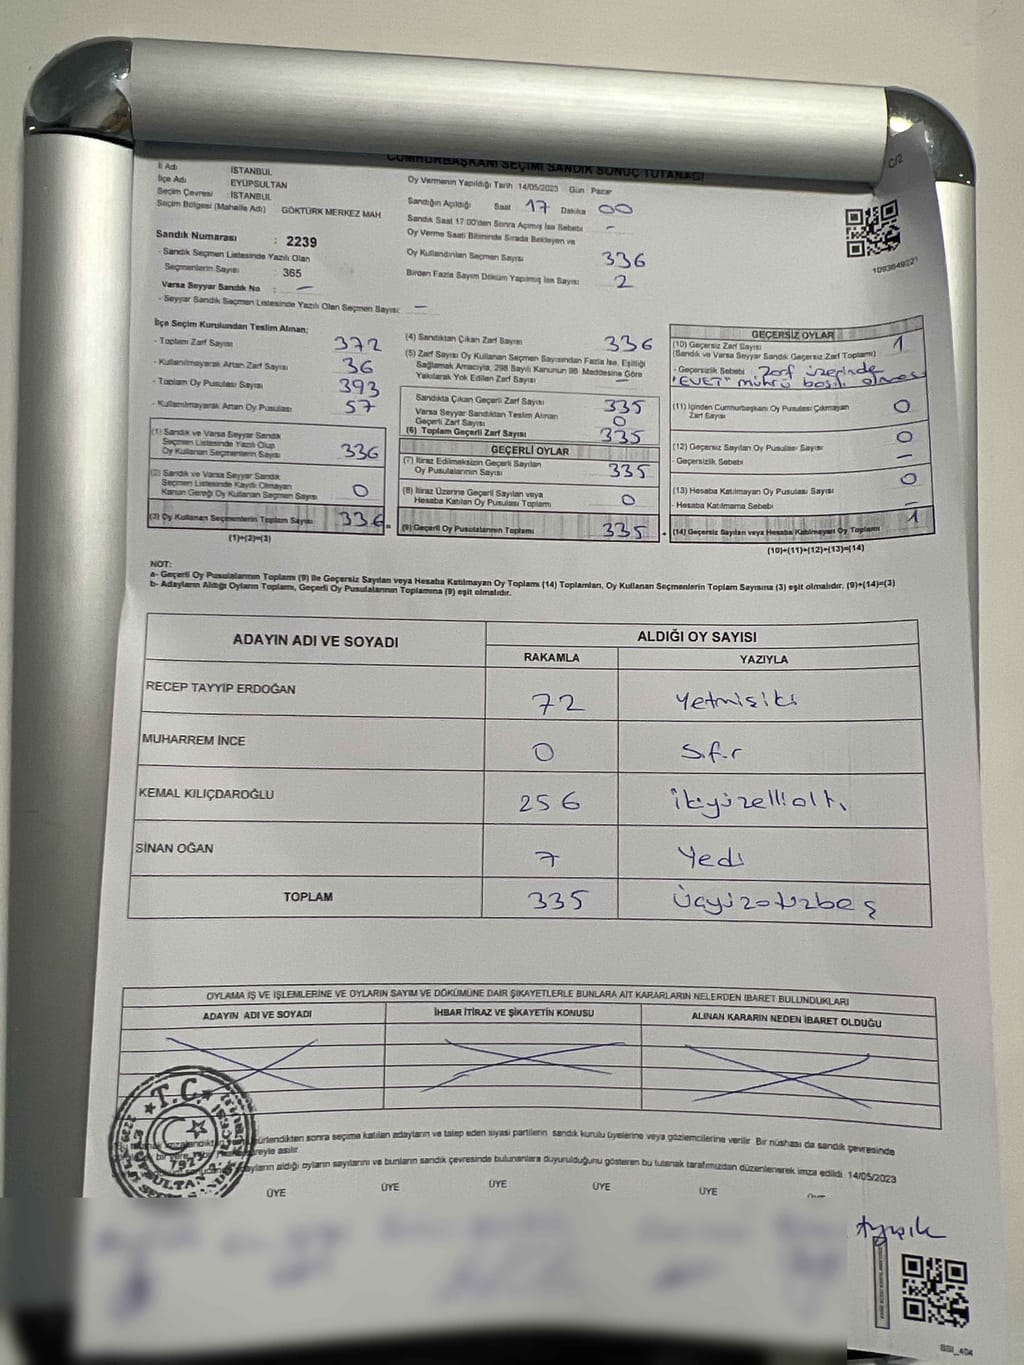 CUMHURBAŞKANI SEÇİMİ SANDIK SONUÇ TUTANAĞI
C/2
İl Adı İSTANBUL
İlçe Adı EYÜPSULTAN
Seçim Çevresi : İSTANBUL
Seçim Bölgesi (Mahalle Adı) GÖKTÜRK MERKEZ MAH
Sandık Numarası : 2239
- Sandık Seçmen Listesinde Yazılı Olan
Seçmenlerin Sayısı : 365
Varsa Seyyar Sandık No : -
- Seyyar Sandık Seçmen Listesinde Yazılı Olan Seçmen Sayısı: -
Oy Vermenin Yapıldığı Tarih 14/05/2023 Gün Pazar
Sandığın Açıldığı Saat 17 Dakika 00
Sandık Saat 17:00'den Sonra Açımış İse Sebebi -
Oy Verme Saati Bitiminde Sırada Bekleyen ve
Oy Kullandırılan Seçmen Sayısı 336
Birden Fazla Sayım Döküm Yapılmış İse Sayısı 2
1093649221
İlçe Seçim Kurulundan Teslim Alınan;
- Toplam Zarf Sayısı 372
- Kullanılmayarak Artan Zarf Sayısı 36
- Toplam Oy Pusulası Sayısı 393
- Kullanılmayarak Artan Oy Pusulası 57
(1) Sandık ve Varsa Seyyar Sandık
Seçmen Listesinde Yazılı Olup
Oy Kullanan Seçmenlerin Sayısı 336
(2) Sandık ve Varsa Seyyar Sandık
Seçmen Listesinde Kayıtlı Olmayan
Kanun Gereği Oy Kullanan Seçmen Sayısı 0
(3) Oy Kullanan Seçmenlerin Toplam Sayısı 336 =
(1)+(2)=(3)
(4) Sandıktan Çıkan Zarf Sayısı 336
(5) Zarf Sayısı Oy Kullanan Seçmen Sayısından Fazla İse, Eşitliği
Sağlamak Amacıyla, 298 Sayılı Kanunun 98. Maddesine Göre
Yakılarak Yok Edilen Zarf Sayısı -
Sandıkta Çıkan Geçerli Zarf Sayısı 335
Varsa Seyyar Sandıktan Teslim Alınan
Geçerli Zarf Sayısı 0
(6) Toplam Geçerli Zarf Sayısı 335
GEÇERLİ OYLAR
(7) İtiraz Edilmeksizin Geçerli Sayılan
Oy Pusulalarının Sayısı 335
(8) İtiraz Üzerine Geçerli Sayılan veya
Hesaba Katılan Oy Pusulası Toplamı 0
(9) Geçerli Oy Pusulalarının Toplamı 335 +
GEÇERSİZ OYLAR
(10) Geçersiz Zarf Sayısı 1
(Sandık ve Varsa Seyyar Sandık Geçersiz Zarf Toplamı)
- Geçersizlik Sebebi Zarf üzerinde
"EVET" mührü basılı olması
(11) İçinden Cumhurbaşkanı Oy Pusulası Çıkmayan
Zarf Sayısı 0
(12) Geçersiz Sayılan Oy Pusulası Sayısı 0
- Geçersizlik Sebebi -
(13) Hesaba Katılmayan Oy Pusulası Sayısı 0
- Hesaba Katılmama Sebebi -
(14) Geçersiz Sayılan veya Hesaba Katılmayan Oy Toplamı 1
(10)+(11)+(12)+(13)=(14)
NOT:
a- Geçerli Oy Pusulalarının Toplamı (9) ile Geçersiz Sayılan veya Hesaba Katılmayan Oy Toplamı (14) Toplamları, Oy Kullanan Seçmenlerin Toplam Sayısına (3) eşit olmalıdır. (9)+(14)=(3)
b- Adayların Aldığı Oyların Toplamı, Geçerli Oy Pusulalarının Toplamına (9) eşit olmalıdır.
ADAYIN ADI VE SOYADI ALDIĞI OY SAYISI
RAKAMLA YAZIYLA
RECEP TAYYİP ERDOĞAN 72 Yetmişiki
MUHARREM İNCE 0 Sıfır
KEMAL KILIÇDAROĞLU 256 İkiyüzellialtı
SİNAN OĞAN 7 Yedi
TOPLAM 335 Üçyüzotuzbeş
OYLAMA İŞ VE İŞLEMLERİNE VE OYLARIN SAYIM VE DÖKÜMÜNE DAİR ŞİKAYETLERLE BUNLARA AİT KARARLARIN NELERDEN İBARET BULUNDUKLARI
ADAYIN ADI VE SOYADI İHBAR İTİRAZ VE ŞİKAYETİN KONUSU ALINAN KARARIN NEDEN İBARET OLDUĞU
T.C.
sonra seçime katılan adayların ve talep eden siyasi partilerin sandık kurulu üyelerine veya gözlemcilerine verilir. Bir nüshası da sandık çevresinde
asılır.
adayların aldığı oyların sayılarını ve bunların sandık çevresinde bulunanlara duyurulduğunu gösteren bu tutanak tarafımızdan düzenlenerek imza edildi. 14/05/2023
ÜYE ÜYE ÜYE ÜYE ÜYE